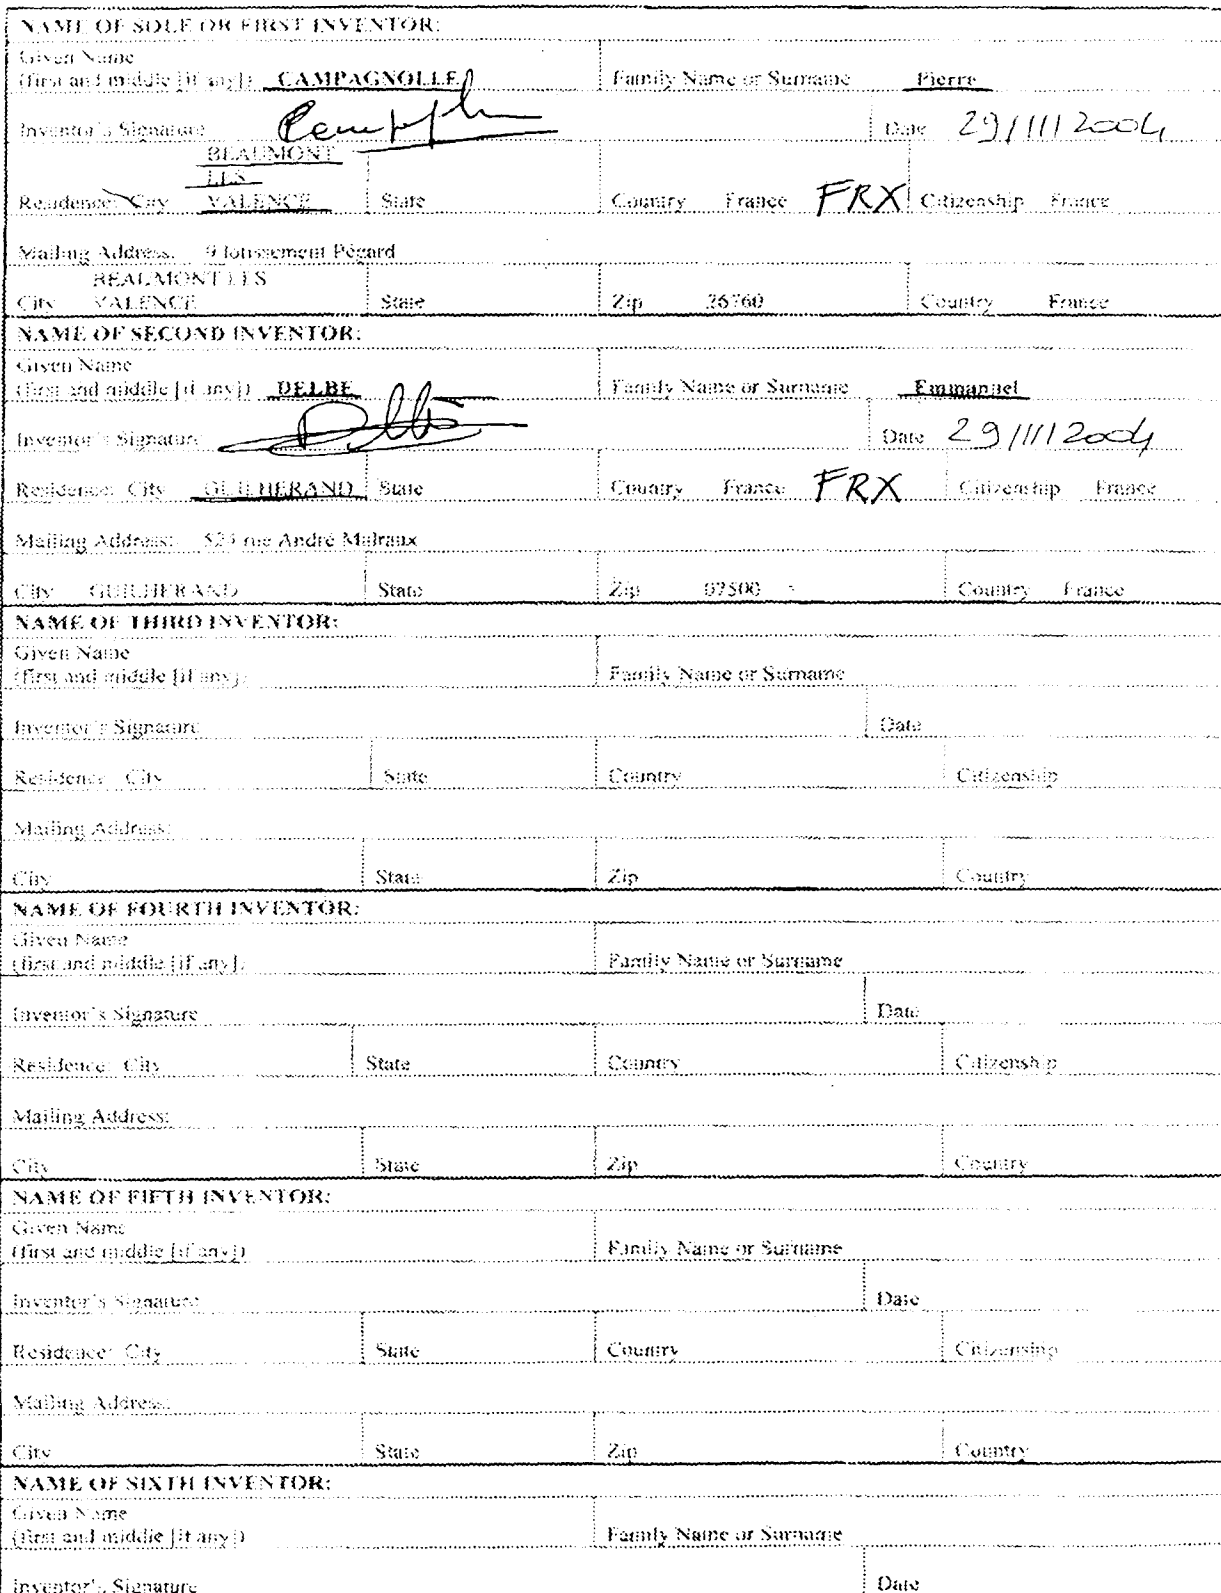 NAME OF SOLE OR FIRST INVENTOR:
Given Name
(first and middle [if any]) CAMPAGNOLLE Family Name or Surname Pierre
Inventor's Signature Date 29/11/2004
BEAUMONT
LES
Residence: City VALENCE State Country France FRX Citizenship France
Mailing Address: 9 lotissement Pégard
BEAUMONT LES
City VALENCE State Zip 26760 Country France
NAME OF SECOND INVENTOR:
Given Name
(first and middle [if any]) DELBE Family Name or Surname Emmanuel
Inventor's Signature Date 29/11/2004
Residence: City GUILHERAND State Country France FRX Citizenship France
Mailing Address: rue André Malraux
City GUILHERAND State Zip 07500 Country France
NAME OF THIRD INVENTOR:
Given Name
(first and middle [if any]) Family Name or Surname
Inventor's Signature Date
Residence: City State Country Citizenship
Mailing Address:
City State Zip Country
NAME OF FOURTH INVENTOR:
Given Name
(first and middle [if any]) Family Name or Surname
Inventor's Signature Date
Residence: City State Country Citizenship
Mailing Address:
City State Zip Country
NAME OF FIFTH INVENTOR:
Given Name
(first and middle [if any]) Family Name or Surname
Inventor's Signature Date
Residence: City State Country Citizenship
Mailing Address:
City State Zip Country
NAME OF SIXTH INVENTOR:
Given Name
(first and middle [if any]) Family Name or Surname
Inventor's Signature Date